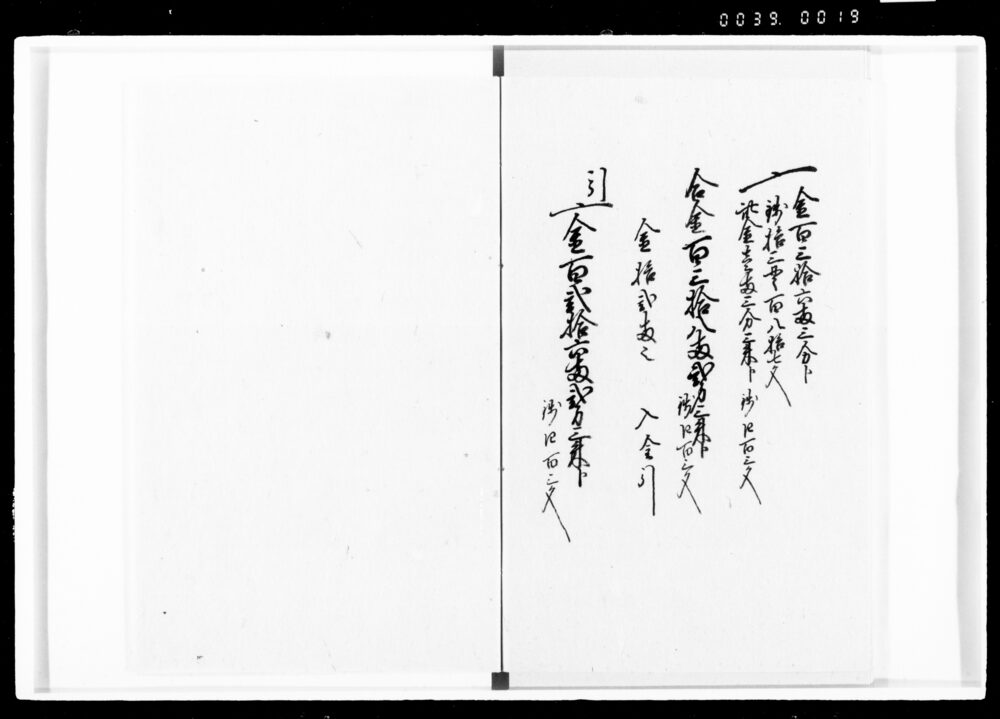 0039.0019
一 金百三拾六両三分ト
銭拾三貫百八拾七文
此金壱両三分三朱ト 銭百三文
合金百三拾八両弐分三朱ト
銭百三文
金拾弐両也 入金引
引
〆金百弐拾六両弐分三朱ト
銭百三文